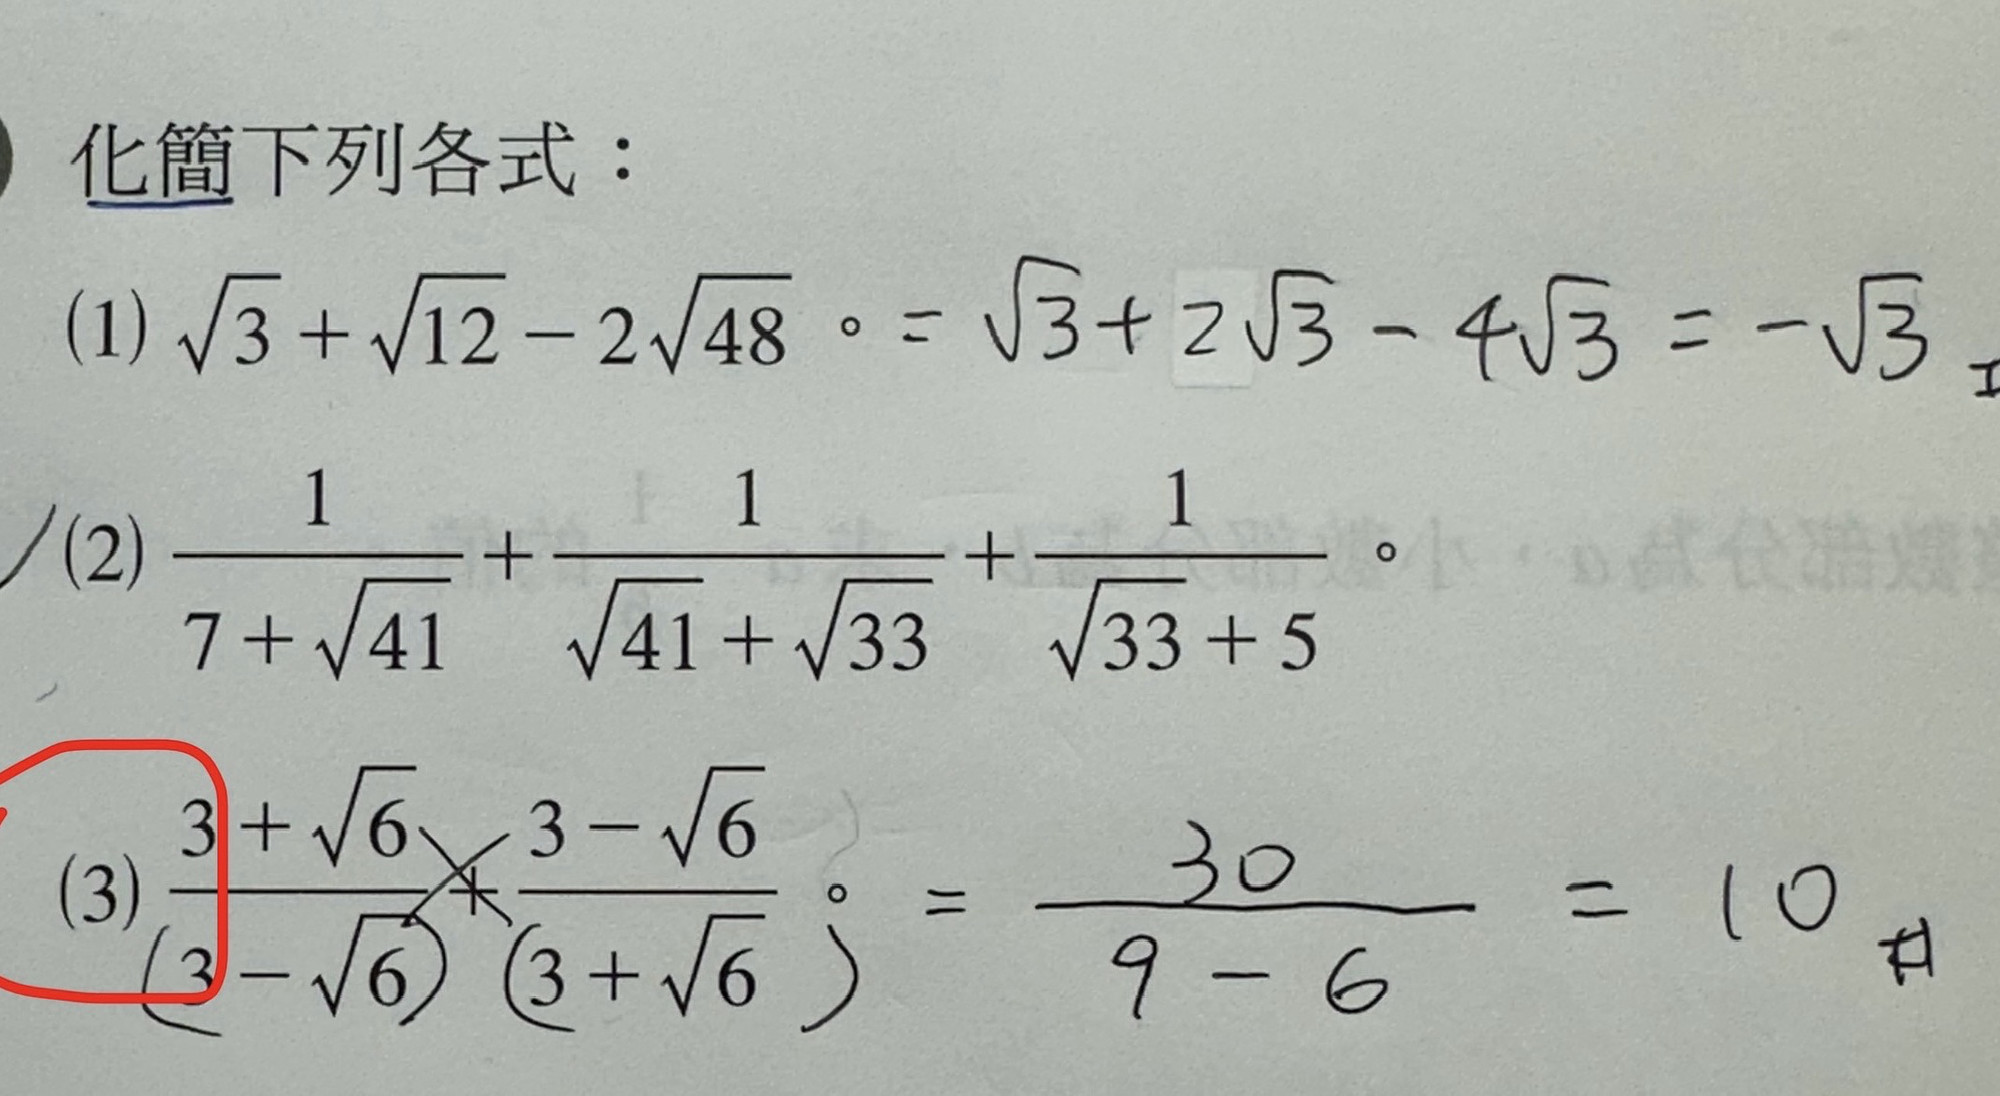 化簡下列各式：
(1) √3 + √12 − 2√48 。 = √3 + 2√3 − 4√3 = −√3
(2) 1/(7 + √41) + 1/(√41 + √33) + 1/(√33 + 5) 。
(3) (3 + √6)/(3 − √6) + (3 − √6)/(3 + √6) 。 = 30/(9 − 6) = 10 #